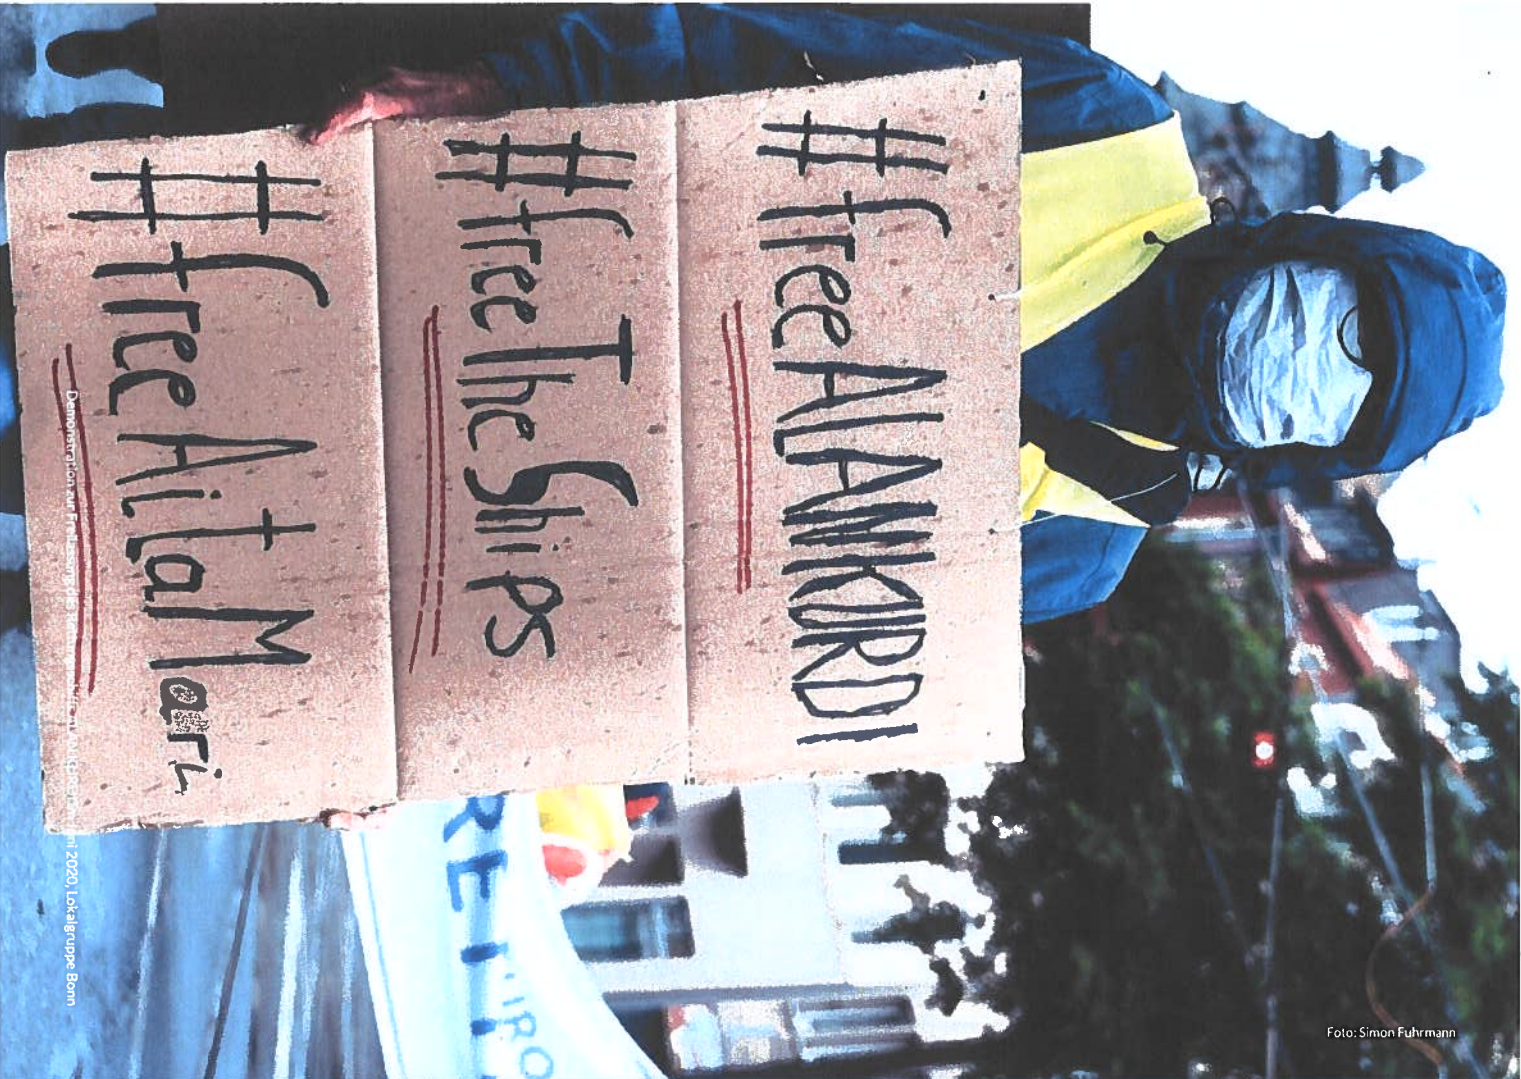 #freeALANKURDI
#freeTheShips
#freeAitaMari
RETT
IRO
Demonstration zur Fr
ni 2020, Lokalgruppe Bonn
Foto: Simon Fuhrmann